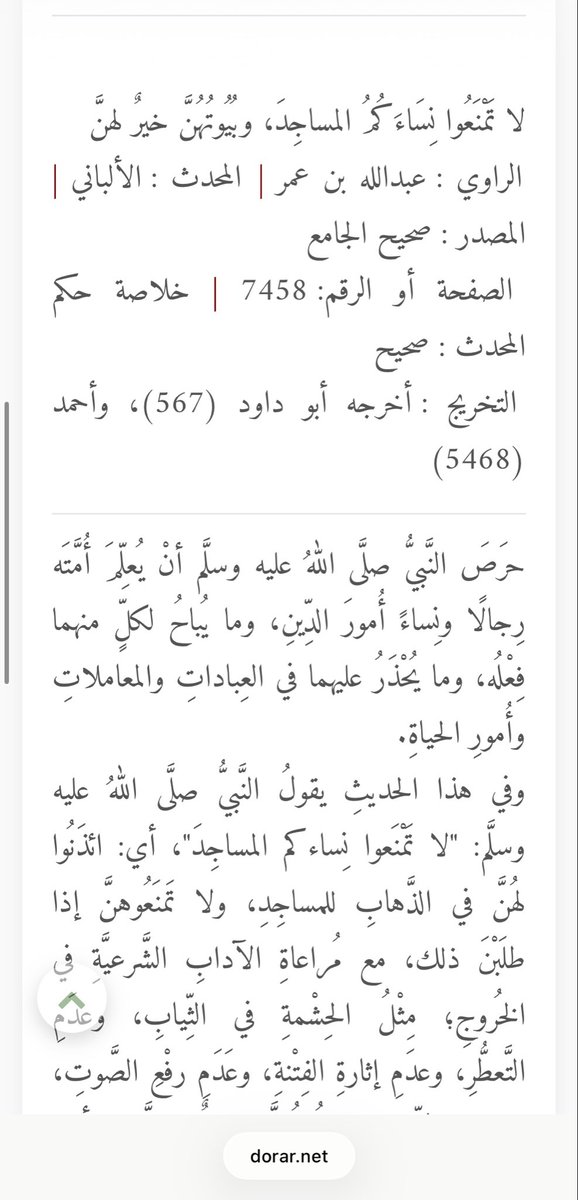 لا تَمْنَعُوا نِسَاءَكُمُ المساجِدَ، وبُيُوتُهُنَّ خيرٌ لهنَّ
الراوي : عبدالله بن عمر | المحدث : الألباني |
المصدر : صحيح الجامع
الصفحة أو الرقم: 7458 | خلاصة حكم
المحدث : صحيح
التخريج : أخرجه أبو داود (567)، وأحمد
(5468)
حرَصَ النَّبيُّ صلَّى اللهُ عليه وسلَّم أنْ يُعلِّمَ أُمَّتَه
رِجالًا ونِساءً أُمورَ الدِّينِ، وما يُباحُ لكلٍّ منهما
فِعْلُه، وما يُحْذَرُ عليهما في العِباداتِ والمعاملاتِ
وأُمورِ الحياةِ.
وفي هذا الحديثِ يقولُ النَّبيُّ صلَّى اللهُ عليه
وسلَّم: "لا تَمْنَعوا نِساءكم المساجِدَ"، أي: ائذَنُوا
لهُنَّ في الذَّهابِ للمساجِدِ، ولا تَمنَعُوهنَّ إذا
طلَبْنَ ذلك، مع مُراعاةِ الآدابِ الشَّرعيَّةِ في
الخُروجِ؛ مِثْلُ الحِشْمةِ في الثِّيابِ، وعدَمِ
التَّعطُّرِ، وعدَمِ إثارةِ الفِتْنةِ، وعَدَمِ رفْعِ الصَّوتِ،
dorar.net